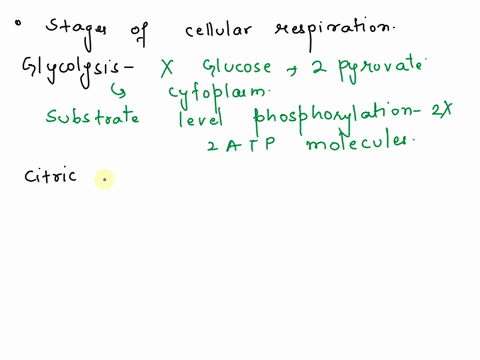 • Stages of cellular respiration.
Glycolysis - X Glucose → 2 pyrovate.
↳ cyfoplasm.
Substrate level phosphorylation - 2X
2 ATP molecules.
Citric